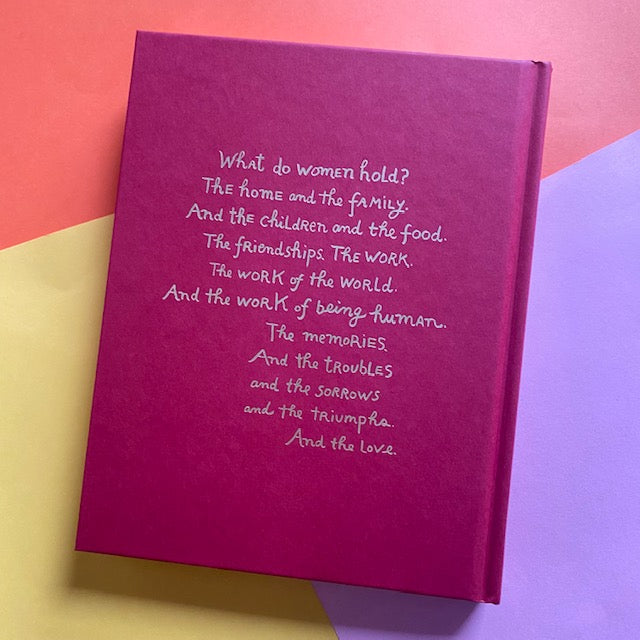 What do women hold?
The home and the family.
And the children and the food.
The friendships. The work.
The work of the world.
And the work of being human.
The memories.
And the troubles
and the sorrows
and the triumphs.
And the love.